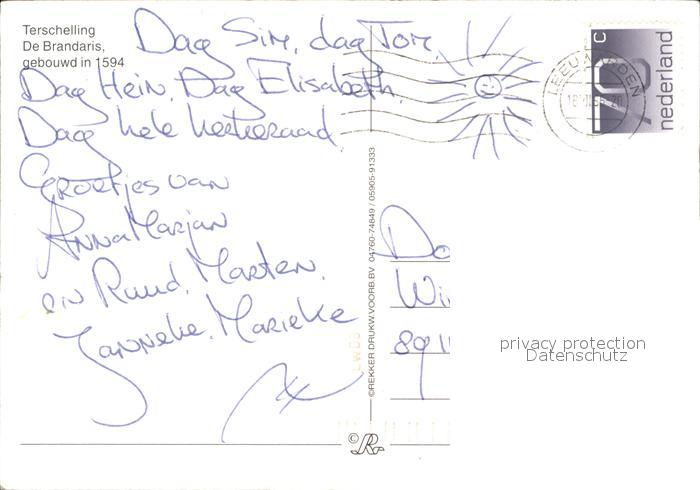 Terschelling
De Brandaris,
gebouwd in 1594
Dag Sim, dag Tom,
Dag Hein, Dag Elisabeth,
Dag hele kerkeraad
Groetjes van
AnnaMarjan
en Ruud, Marten,
Janneke, Marieke
x
©REKKER DRUKW.VOORB.BV 04760-74849 / 05905-91333
LEEUWARDEN
70 c
nederland
Do
Wi
8911
privacy protection
Datenschutz
©R